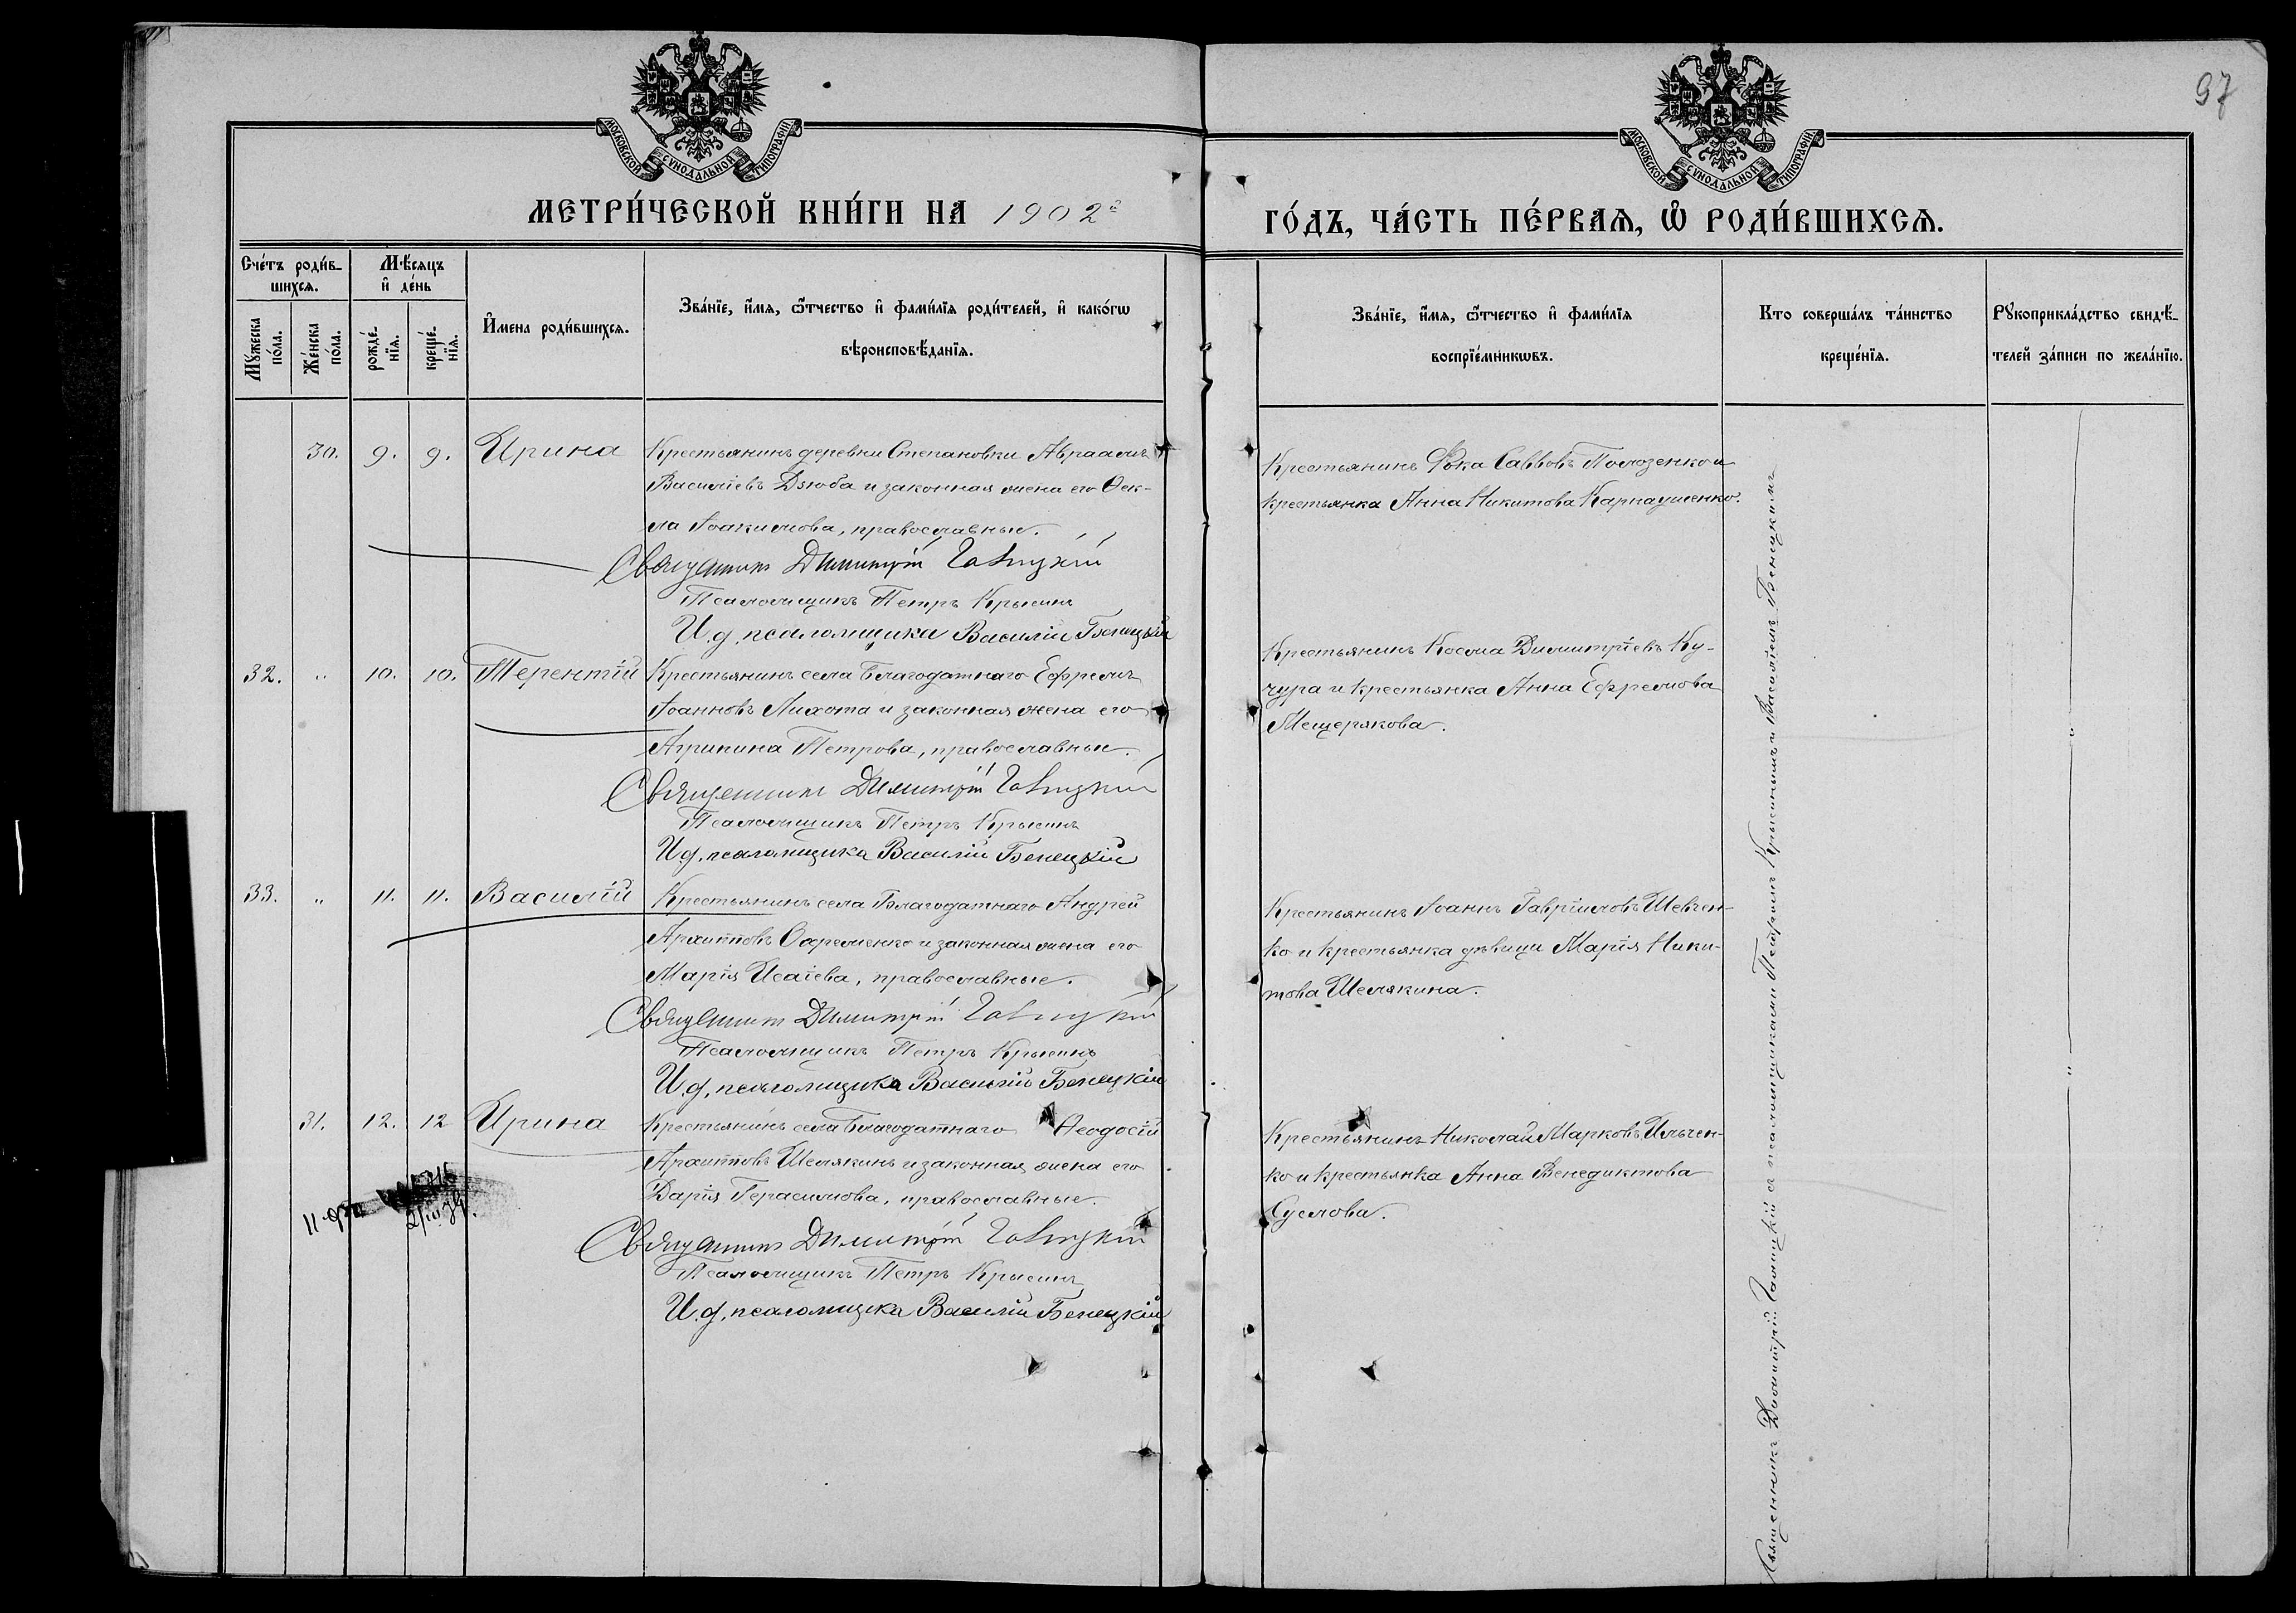 97
МОСКОВСКОЙ СѴНОДАЛЬНОЙ ТИПОГРАФІИ
МОСКОВСКОЙ СѴНОДАЛЬНОЙ ТИПОГРАФІИ
МЕТРИ́ЧЕСКОЙ КНИ́ГИ НА 1902й
ГО́ДЪ, ЧА́СТЬ ПЕ́РВАѦ, Ѡ҆ РОДИ́ВШИХСѦ.
Сче́тъ роди́в-
шихсѧ.
Мꙋ́жеска по́ла.
Же́нска по́ла.
Мѣ́сѧцъ
и҆ де́нь
рожде́нїѧ.
креще́нїѧ.
И҆мена роди́вшихсѧ.
Зва́нїе, и҆́мѧ, ѻ҆́тчество и҆ фами́лїѧ роди́телей, и҆ како́гѡ
вѣроисповѣ́данїѧ.
Зва́нїе, и҆́мѧ, ѻ҆́тчество и҆ фами́лїѧ
воспрїе́мникѡвъ.
Кто соверша́лъ та́инство
креще́нїѧ.
Рꙋкоприкла́дство свидѣ́-
телей за́писи по жела́нїю.
30. 9. 9. Ирина Крестьянинъ деревни Степановки Авраамъ
Василіевъ Дзюба и законная жена его Ѳек-
ла Іоакимова, православные.
Священникъ Димитрій Галицкій
Псаломщикъ Петръ Крысинъ
И. д. псаломщика Василій Бенецкій
Крестьянинъ Фока Саввовъ Полозенко и
крестьянка Анна Никитова Карпаушенко.
32. " 10. 10. Терентій Крестьянинъ села Благодатнаго Ефремъ
Іоанновъ Лихота и законная жена его
Агрипина Петрова, православные.
Священникъ Димитрій Галицкій
Псаломщикъ Петръ Крысинъ
И. д. псаломщика Василій Бенецкій
Крестьянинъ Косма Димитріевъ Ку-
чура и крестьянка Анна Ефремова
Мещерякова.
33. " 11. 11. Василій Крестьянинъ села Благодатнаго Андрей
Архипповъ и законная жена его
Марія Исаіева, православные.
Священникъ Димитрій Галицкій
Псаломщикъ Петръ Крысинъ
И. д. псаломщика Василій Бенецкій
Крестьянинъ Іоаннъ Гавріиловъ Шевчен-
ко и крестьянка дѣвица Марія Ники-
това Шелякина.
31. 12. 12 Ирина Крестьянинъ села Благодатнаго Ѳеодосій
Архипповъ Шелякинъ и законная жена его
Дарія Герасимова, православные.
Священникъ Димитрій Галицкій
Псаломщикъ Петръ Крысинъ
И. д. псаломщика Василій Бенецкій
Крестьянинъ Николай Марковъ Ильчен-
ко и крестьянка Анна Венедиктова
Суслова.
Священникъ Димитрій Галицкій съ псаломщиками Петромъ Крысинымъ и Василіемъ Бенецкимъ